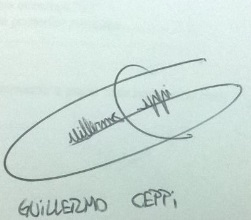 Guillermo Ceppi
GUILLERMO CEPPI